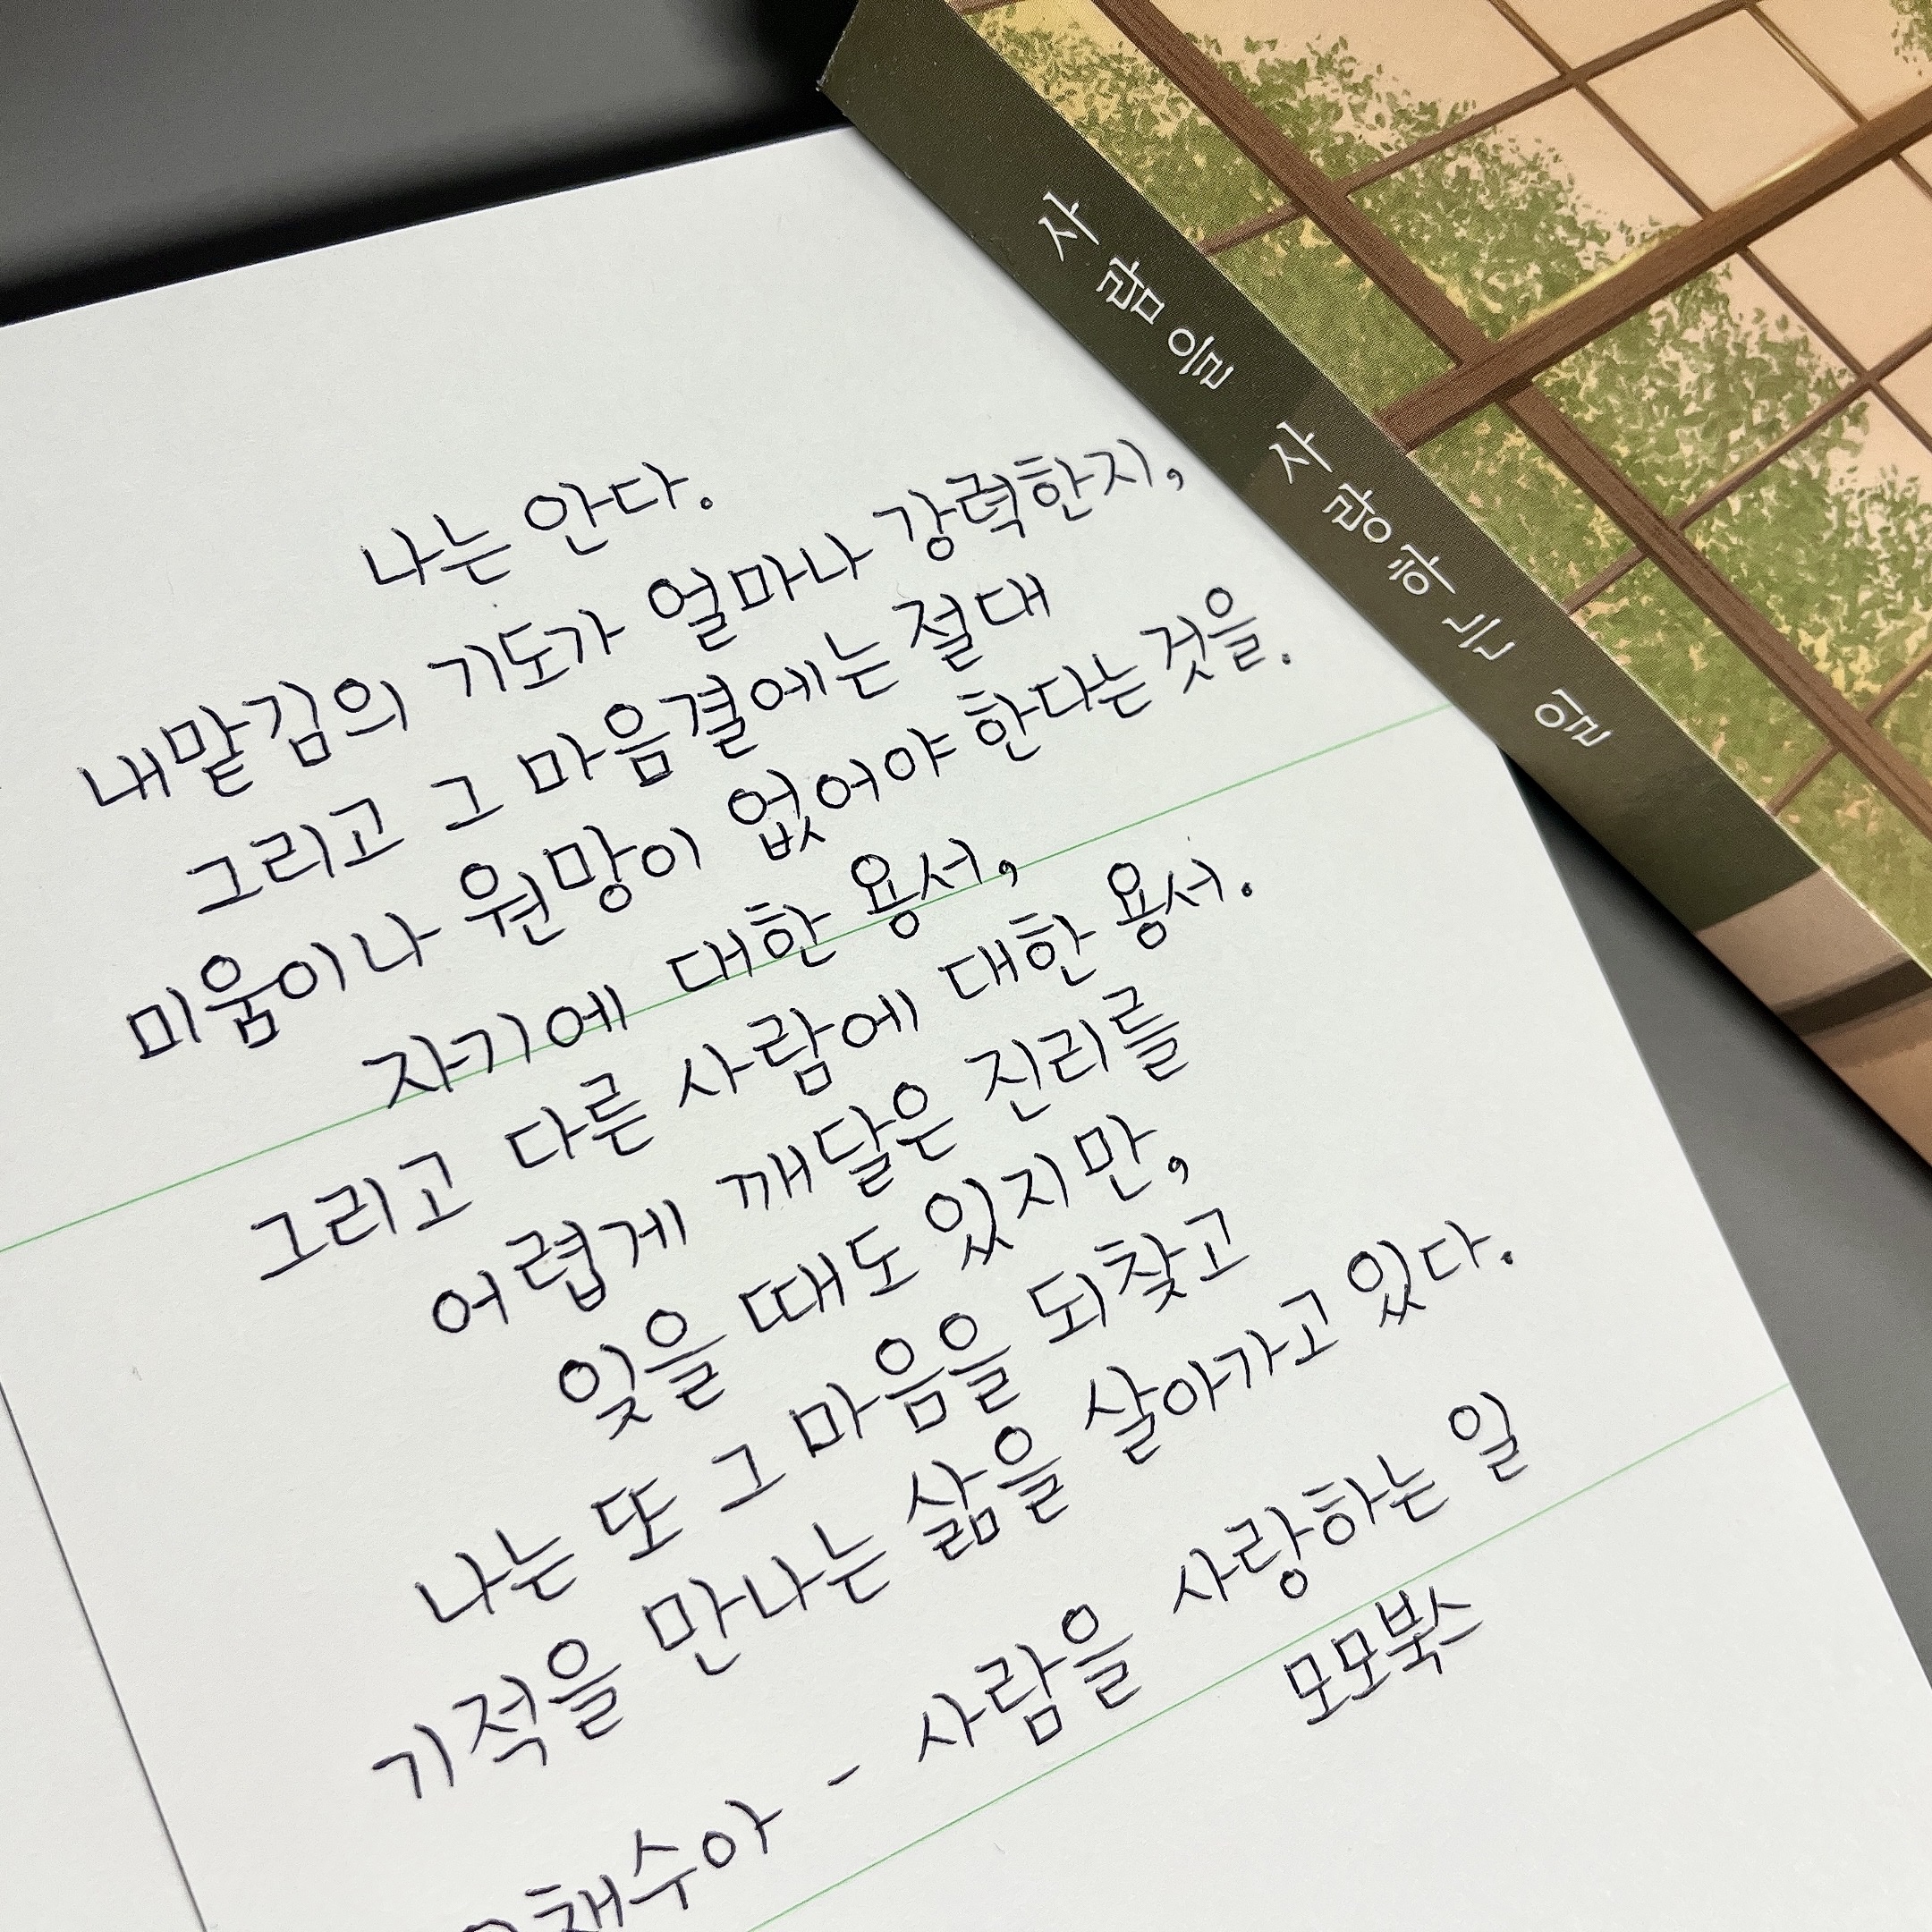 사람을 사랑하는 일
나는 안다.
내맡김의 기도가 얼마나 강력한지,
그리고 그 마음결에는 절대
미움이나 원망이 없어야 한다는 것을.
자기에 대한 용서,
그리고 다른 사람에 대한 용서.
어렵게 깨달은 진리를
잊을 때도 있지만,
나는 또 그 마음을 되찾고
기적을 만나는 삶을 살아가고 있다.
채수아 - 사람을 사랑하는 일
모모북스